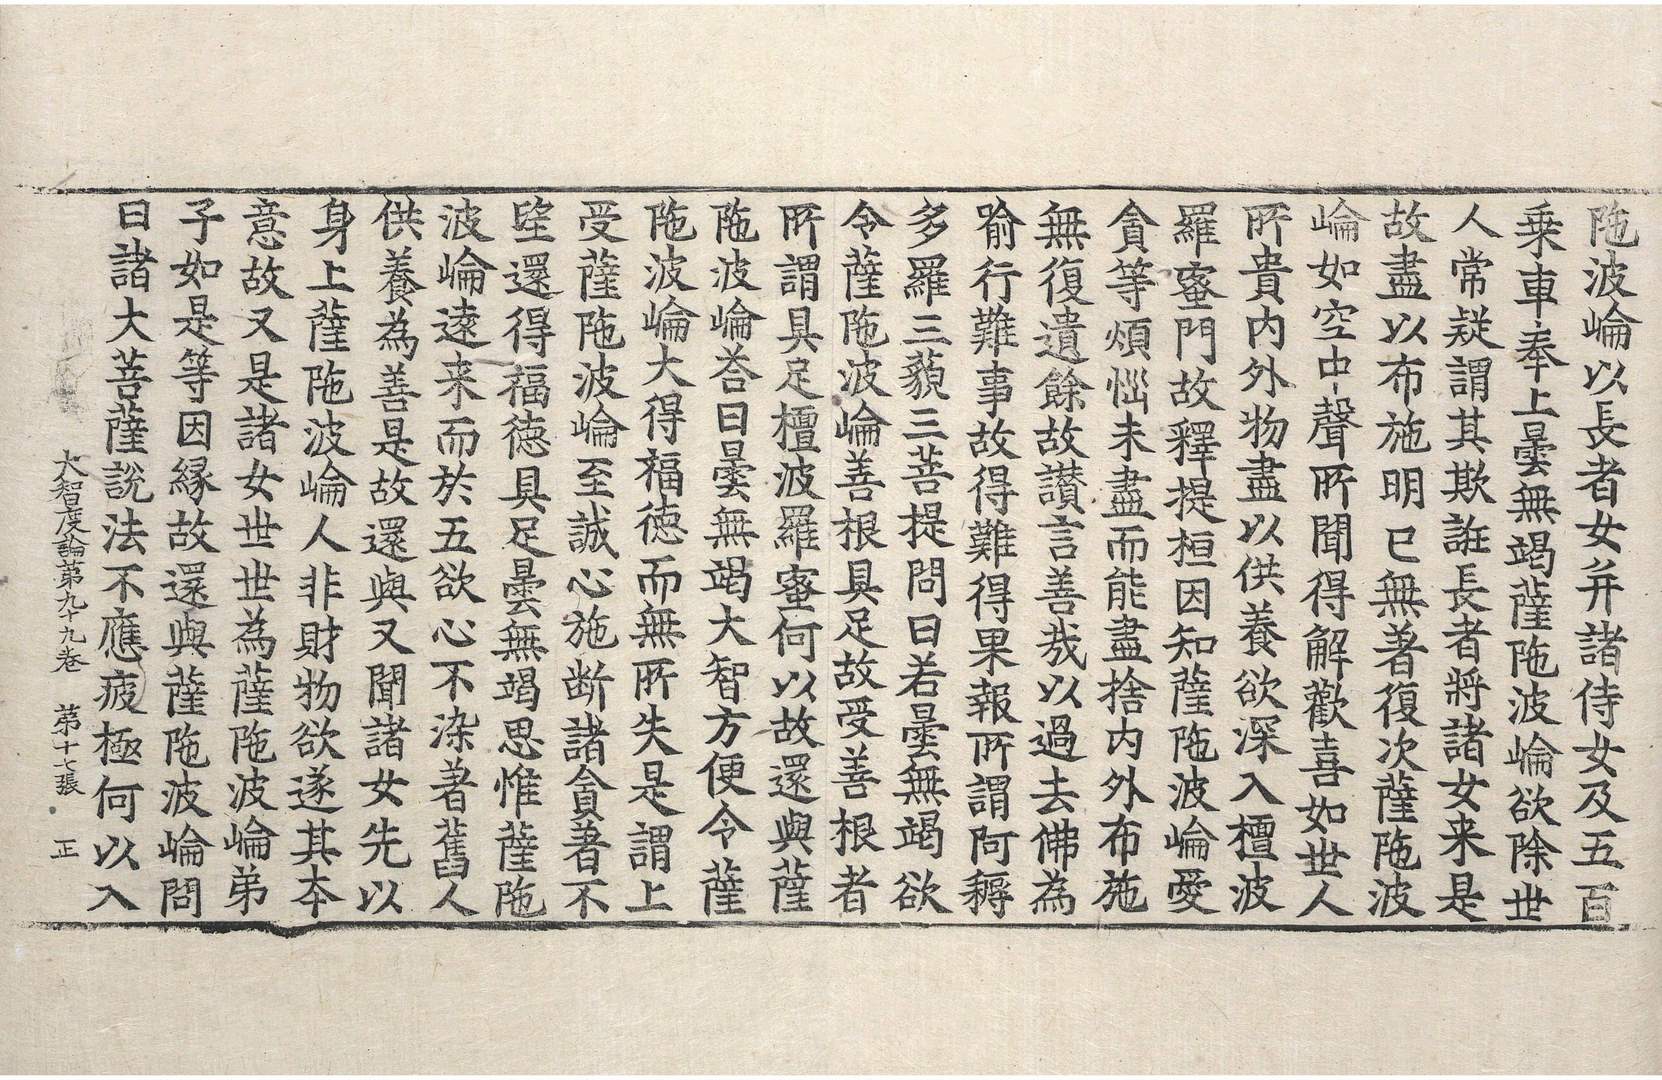 陁波崘以長者女并諸侍女及五百
乗車奉上曇無竭薩陁波崘欲除世
人常疑謂其欺誑長者將諸女来是
故盡以布施明已無著復次薩陁波
崘如空中聲所聞得解歡喜如世人
所貴内外物盡以供養欲深入檀波
羅蜜門故釋提桓因知薩陁波崘愛
貪等煩惱未盡而能盡捨内外布施
無復遺餘故讃言善㢤以過去佛為
喻行難事故得難得果報所謂阿耨
多羅三藐三菩提問曰若曇無竭欲
令薩陁波崘善根具足故受善根者
所謂具足檀波羅蜜何以故還與薩
陁波崘荅曰曇無竭大智方便令薩
陁波崘大得福徳而無所失是謂上
受薩陁波崘至誠心施断諸貪著不
望還得福徳具足曇無竭思惟薩陁
波崘逺来而於五欲心不染著舊人
供養為善是故還與又聞諸女先以
身上薩陁波崘人非財物欲遂其本
意故又是諸女世世為薩陁波崘弟
子如是等因縁故還與薩陁波崘問
曰諸大菩薩説法不應疲極何以入
大智度論第九十九卷　第十七張　正